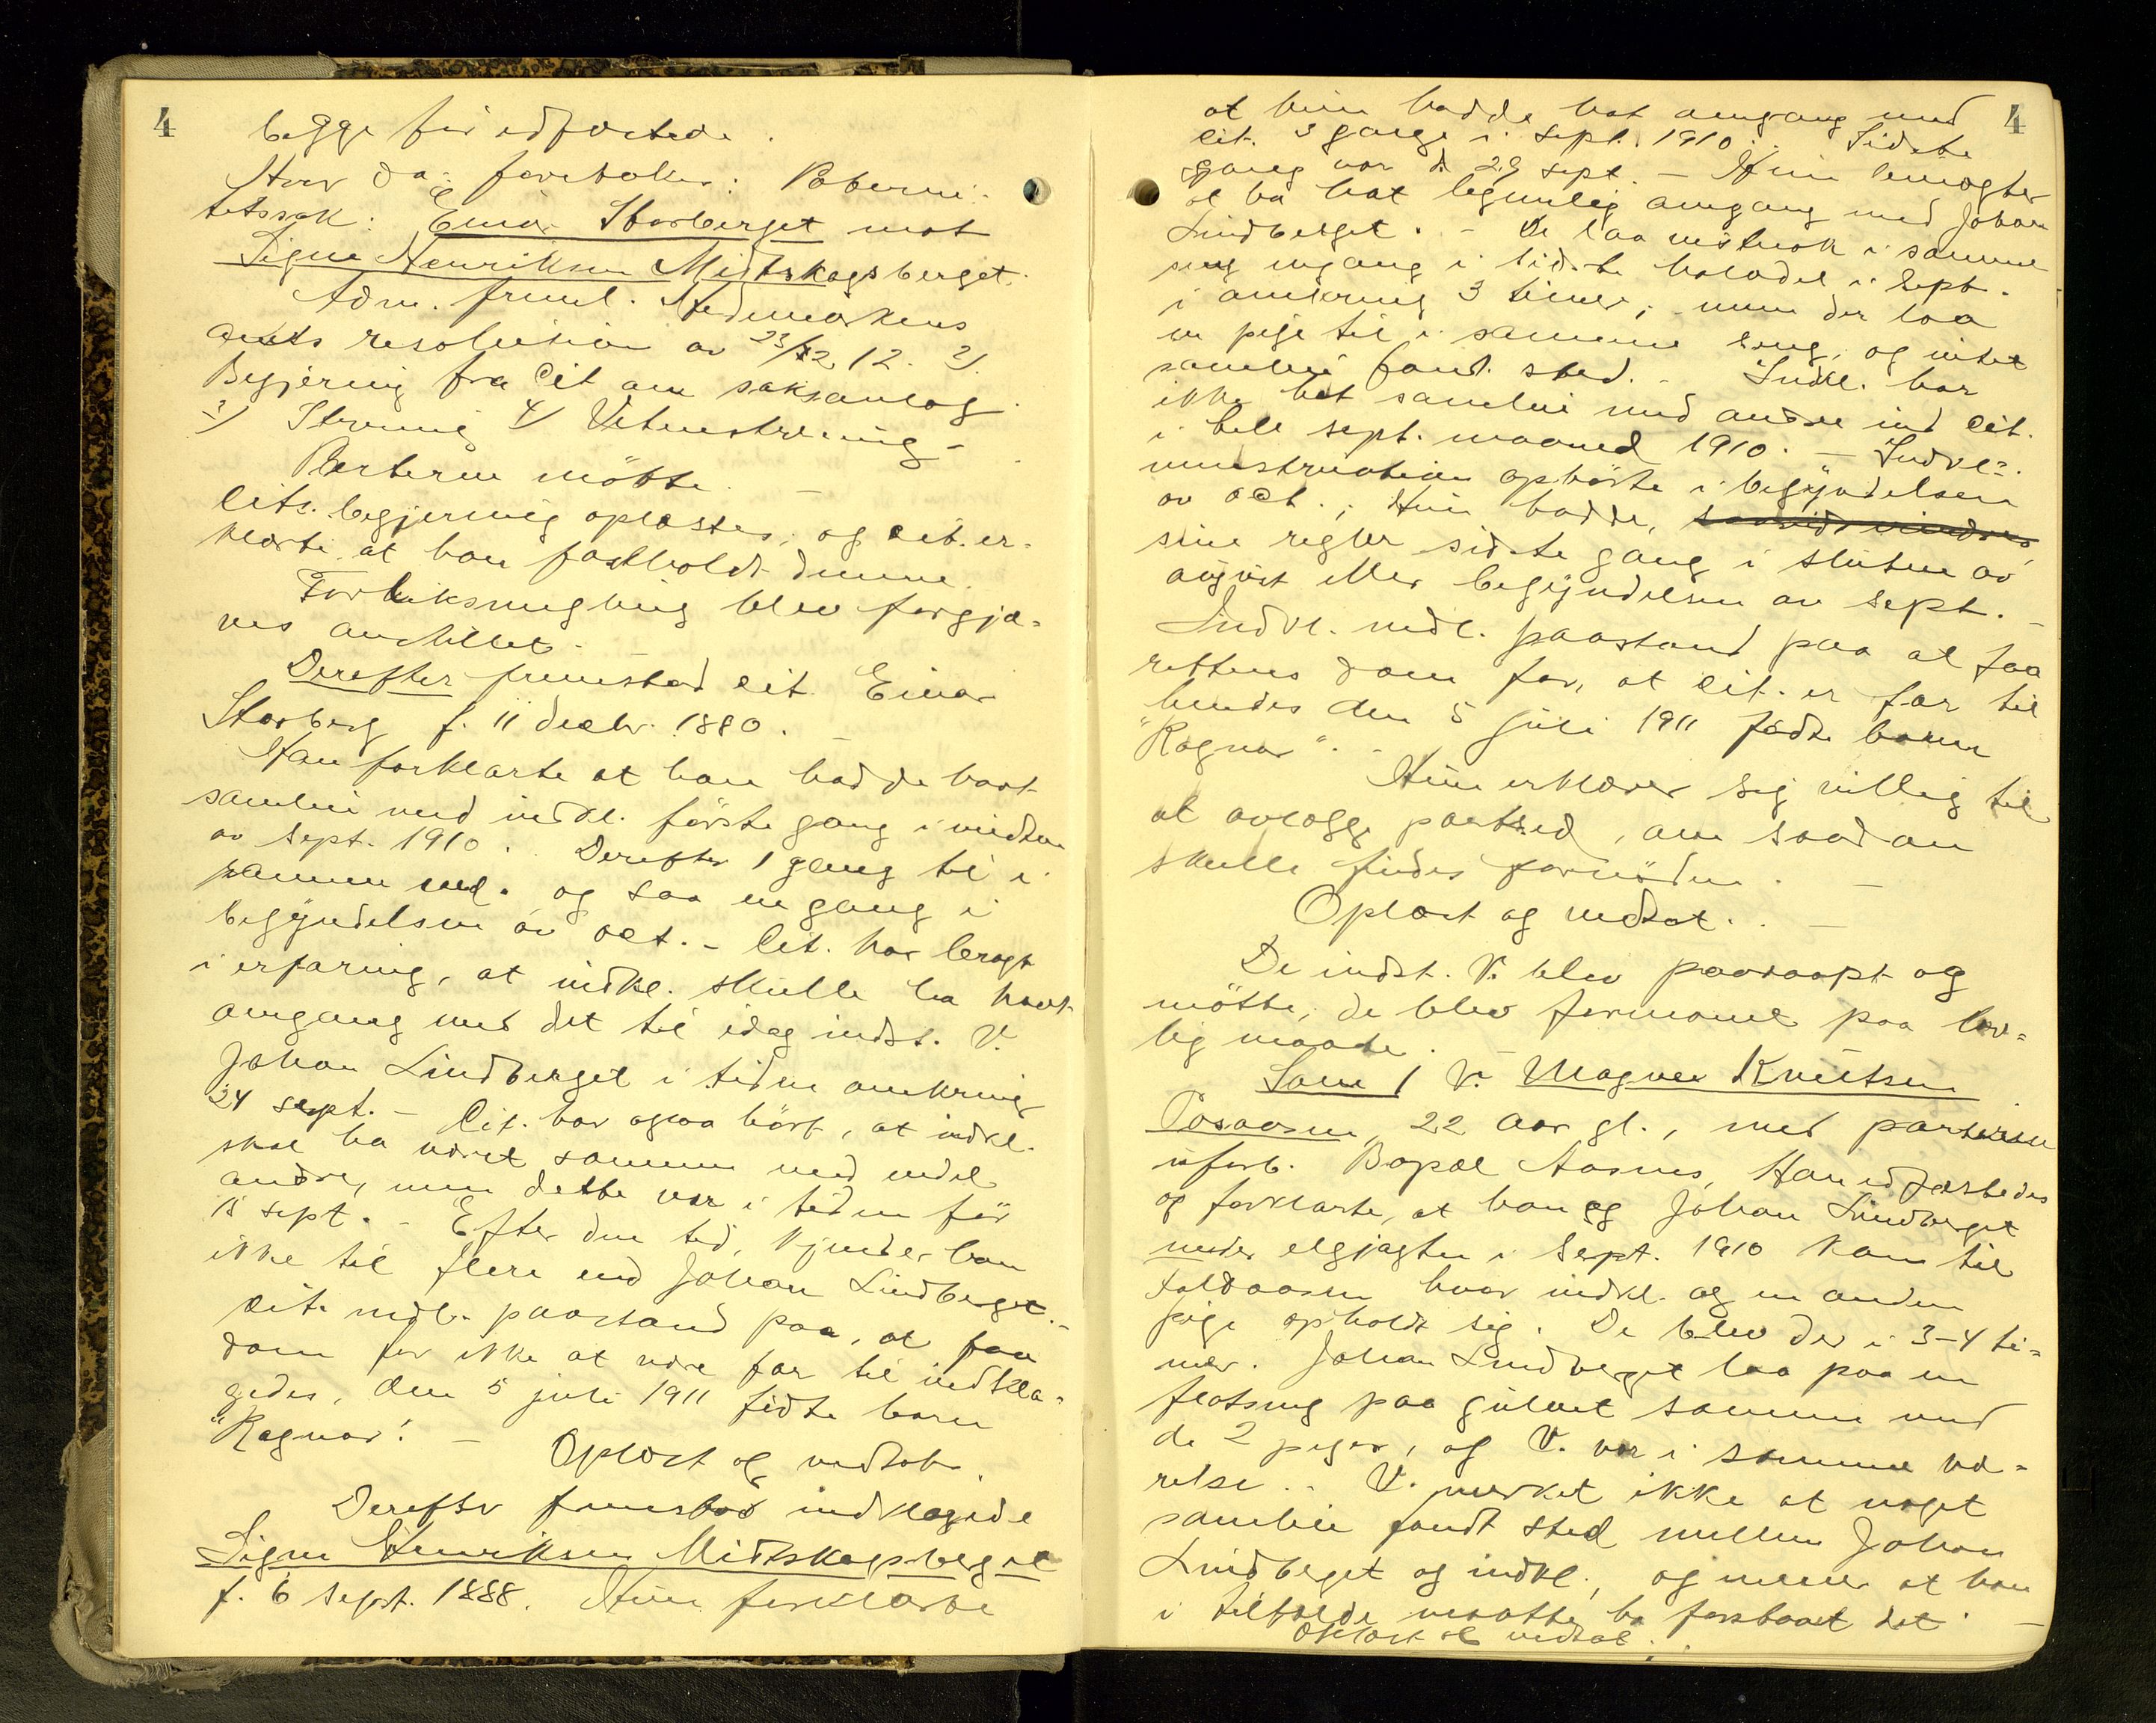 4
begge før edfæstede.
Hvor da foretoges: Paterni-
tetssak: Einar Storberget mot
Signe Henriksen Midtskogsberget.
Adm. freml. Hedemarkens
amts resolution av 23/12 12. 2/.
Begjæring fra Cit om saksanlæg.
3/ Stevning 4/ Vitnestevning -
Parterne møtte. -
Cits. begjæring oplæstes, og cit. er-
klærte at han fastholdt denne.
Forliksmægling blev forgjæ-
ves anstillet. -
Derefter fremstod cit. Einar
Storberg f. 11 decbr. 1880. -
Han forklarte at han hadde havt
samleie med indkl. første gang i midten
av sept. 1910. Derefter 1 gang til i
samme md. og saa en gang i
begyndelsen av oct. - Cit. har bragt
i erfaring, at indkl. skulle ha havt
omgang med det til idag indst. V.
Johan Lindberget i tiden omkring
24 sept. - Cit. har ogsaa hørt, at indkl.
skal ha været sammen med endel
andre, men dette var i tiden før
15 sept. - Efter den tid, kjender han
ikke til flere end Johan Lindberget. -
Cit. nedl. paastand paa, at faa
dom for ikke at være far til indkla-
gedes, den 5 juli 1911 fødte barn
"Ragnar". - Oplæst og vedtat.
Derefter fremstod indklagede
Signe Henriksen Midtskogsberget
f. 6 sept. 1888. Hun forklarte
4
at hun hadde hat omgang med
cit. 3 gange i sept. 1910. Sidste
gang var d. 29 sept. - Hun benegter
at ha hat legemlig omgang med Johan
Lindberget. - De laa vistnok i samme
seng engang i sidste halvdel i sept.
i omkring 3 timer, men der laa
en pige til i samme seng, og intet
samleie fandt sted. - Indkl. har
ikke hat samleie med andre end cit.
i hele sept. maaned 1910. - Indkl.s
menstruation ophørte i begyndelsen
av oct.; Hun hadde,
sine regler sidste gang i slutten av
august eller begyndelsen av sept. -
Indkl. nedl. paastand paa at faa
rettens dom for, at cit. er far til
hendes den 5 juli 1911 fødte barn
"Ragnar". -
Hun erklærer sig villig til
at avlægge partsed, om saadan
skulle findes fornøden. -
Oplæst og vedtat. -
De indst. V. blev paaraapt og
møtte; de blev formanet paa lov-
lig maade.
Som 1 V. Magnus Knutsen
Posaasen, 22 aar gl., med parterne
uforb. Bopæl Aasnes, Han edfæstedes
og forklarte, at han og Johan Lindberget
under elgjagten i sept. 1910 kom til
hvor indkl. og en anden
pige opholdt sig. De blev der i 3-4 ti-
mer. Johan Lindberget laa paa en
flatseng paa gulvet sammen med
de 2 piger, og V. var i samme væ-
relse. - V. merket ikke at noget
samleie fandt sted mellem Johan
Lindberget og indkl., og mener at han
i tilfælde maatte ha forstaaet det. -
Oplæst og vedtat.